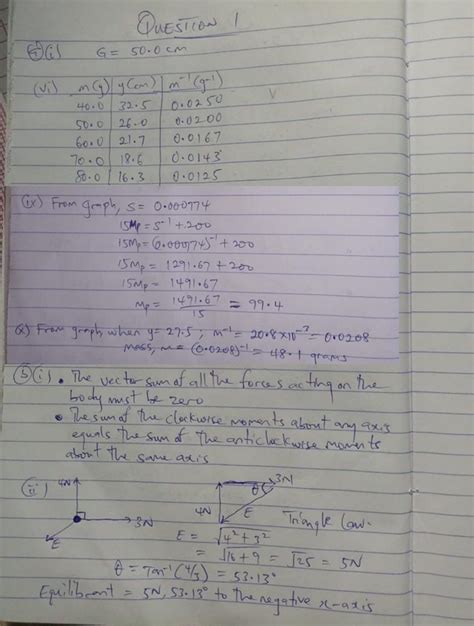 QUESTION 1
(i) G = 50.0 cm
(vi) m(g) y(cm) m⁻¹(g⁻¹)
40.0 32.5 0.0250
50.0 26.0 0.0200
60.0 21.7 0.0167
70.0 18.6 0.0143
80.0 16.3 0.0125
(ix) From graph, S = 0.000774
15Mp = S⁻¹ + 200
15Mp = (0.000774)⁻¹ + 200
15Mp = 1291.67 + 200
15Mp = 1491.67
Mp = 1491.67/15 = 99.4
(x) From graph, when y = 27.5; m⁻¹ = 20.8×10⁻³ = 0.0208
mass, m = (0.0208)⁻¹ = 48.1 grams
(b)(i) • The vector sum of all the forces acting on the
body must be zero
• The sum of the clockwise moments about any axis
equals the sum of the anticlockwise moments
about the same axis
(ii)
4N
3N
E
3N
θ
4N
E
Triangle Law.
E = √4² + 3²
= √16 + 9 = √25 = 5N
θ = Tan⁻¹(4/3) = 53.13°
Equilibrant = 5N, 53.13° to the negative x-axis